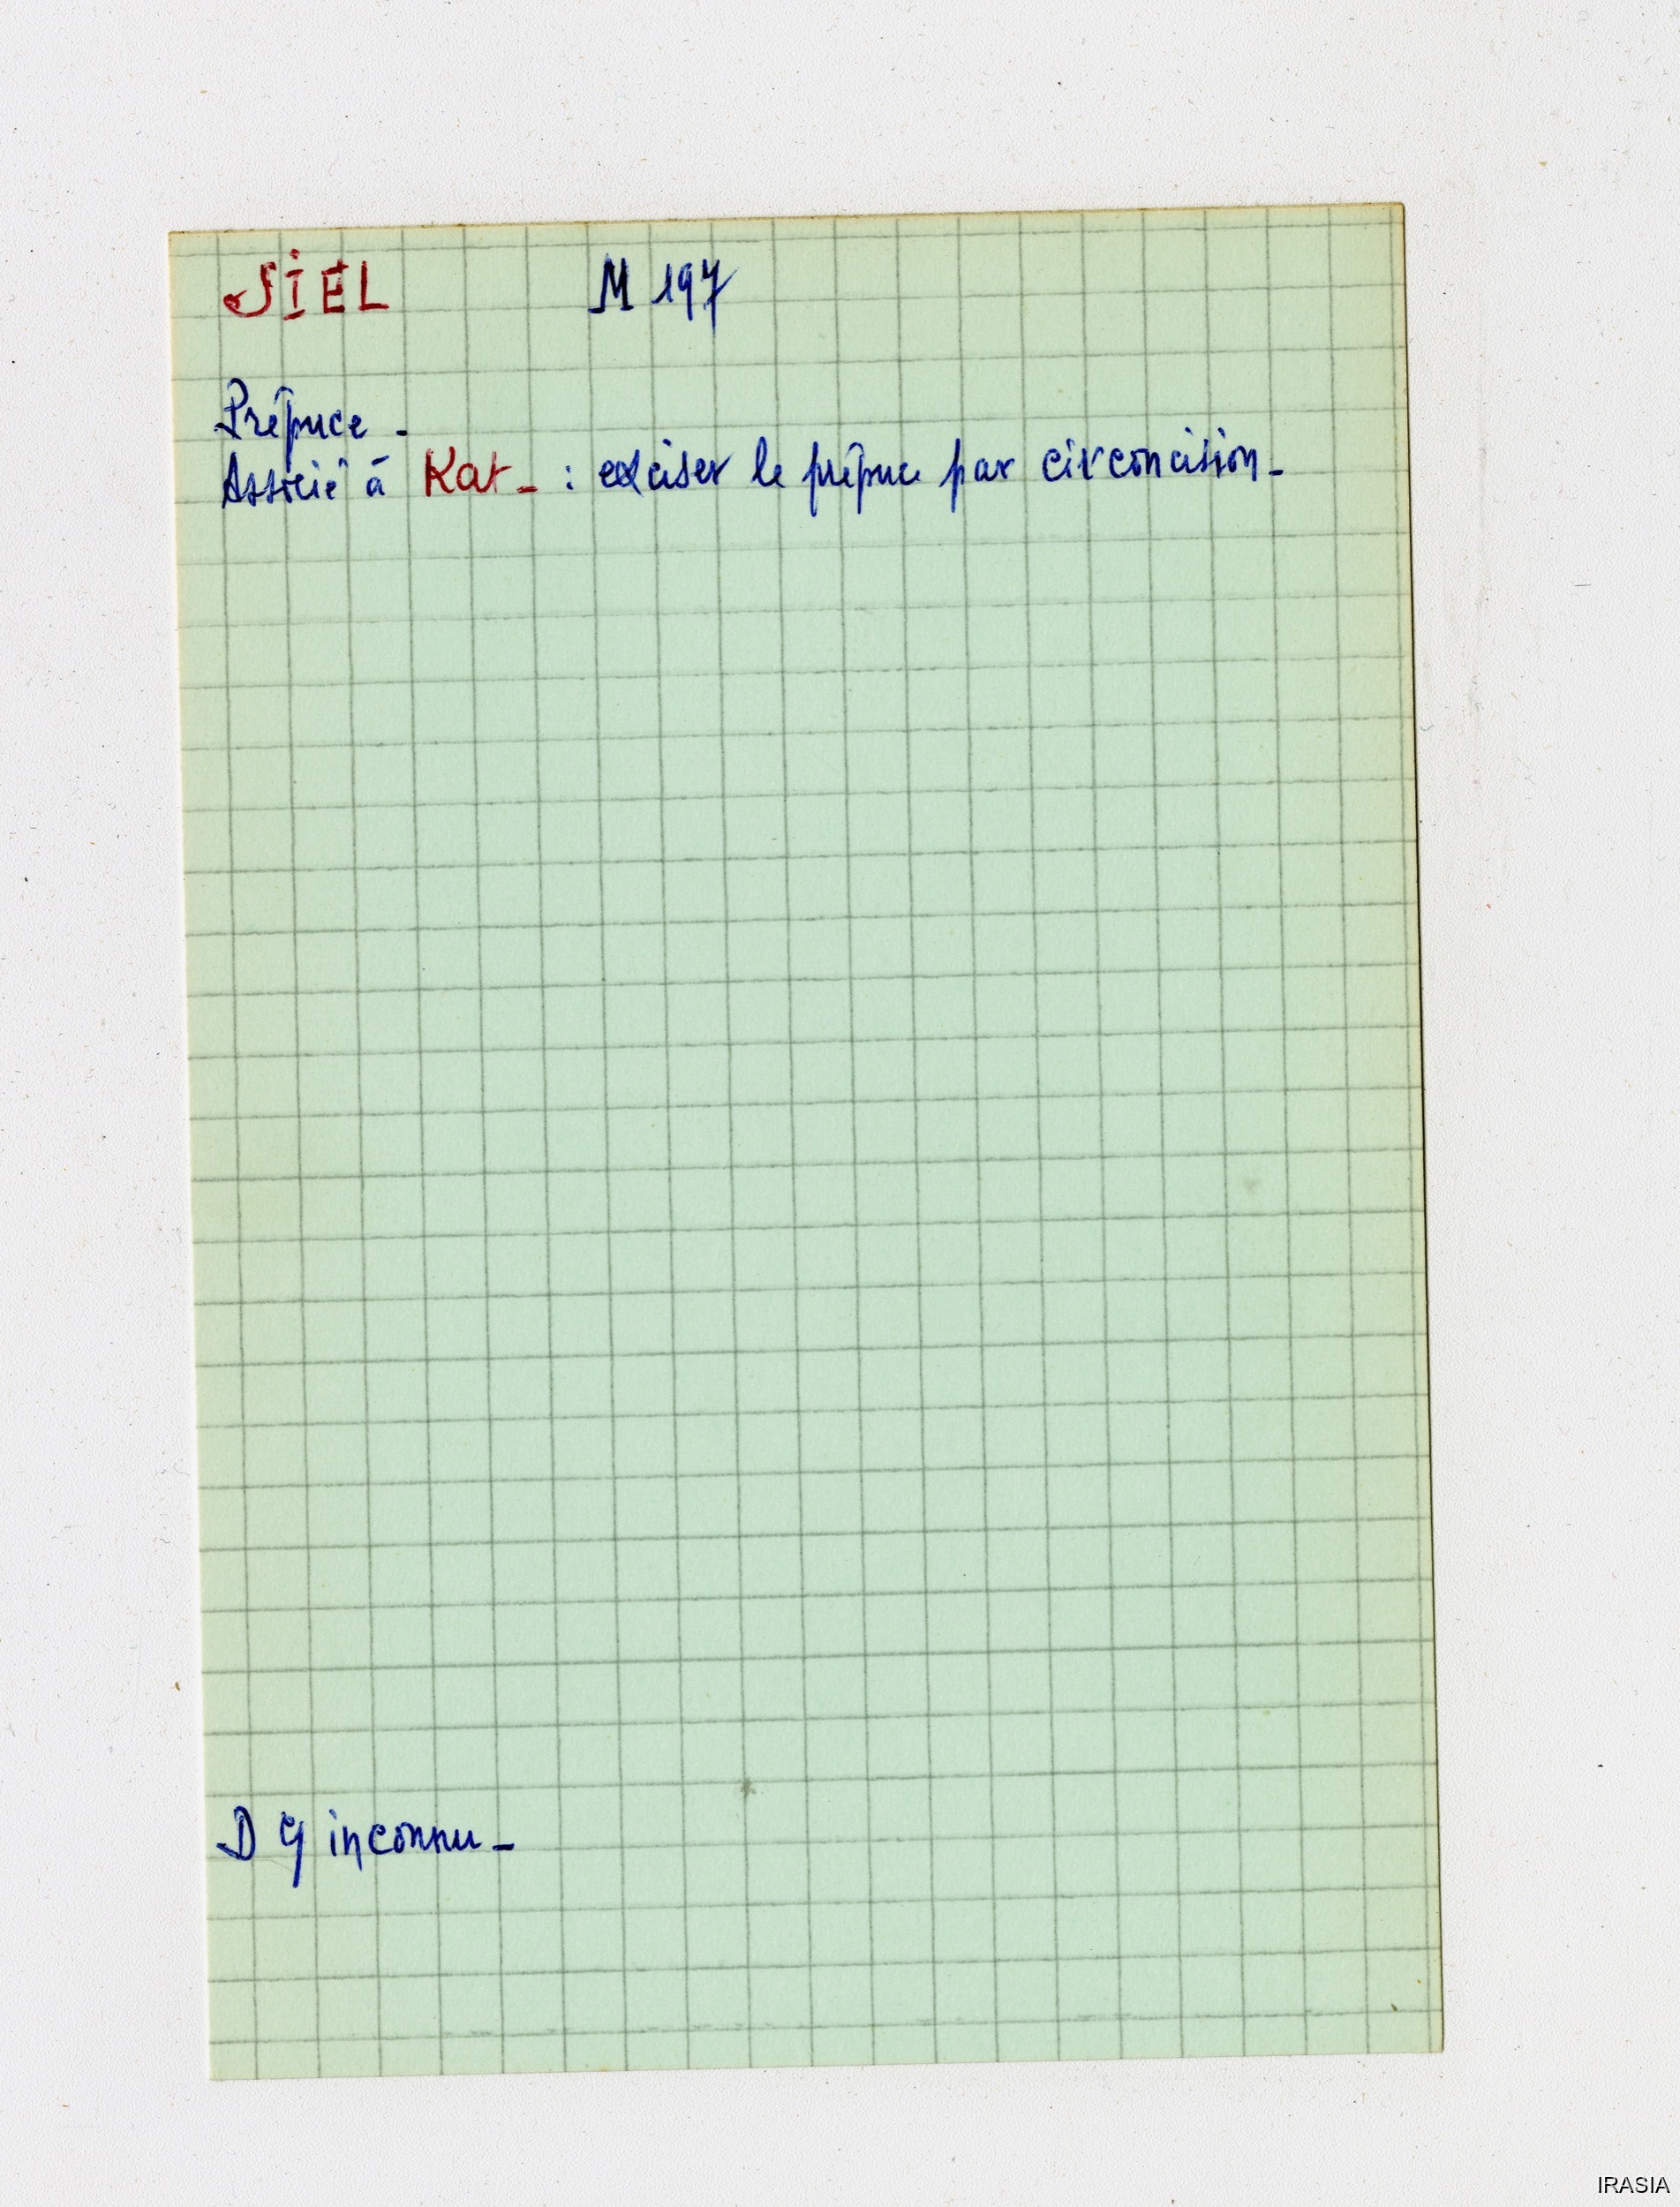 SIEL M 197
Prépuce -
Associé à Kat - : exciser le prépuce par circoncision -
D G inconnu -
IRASIA